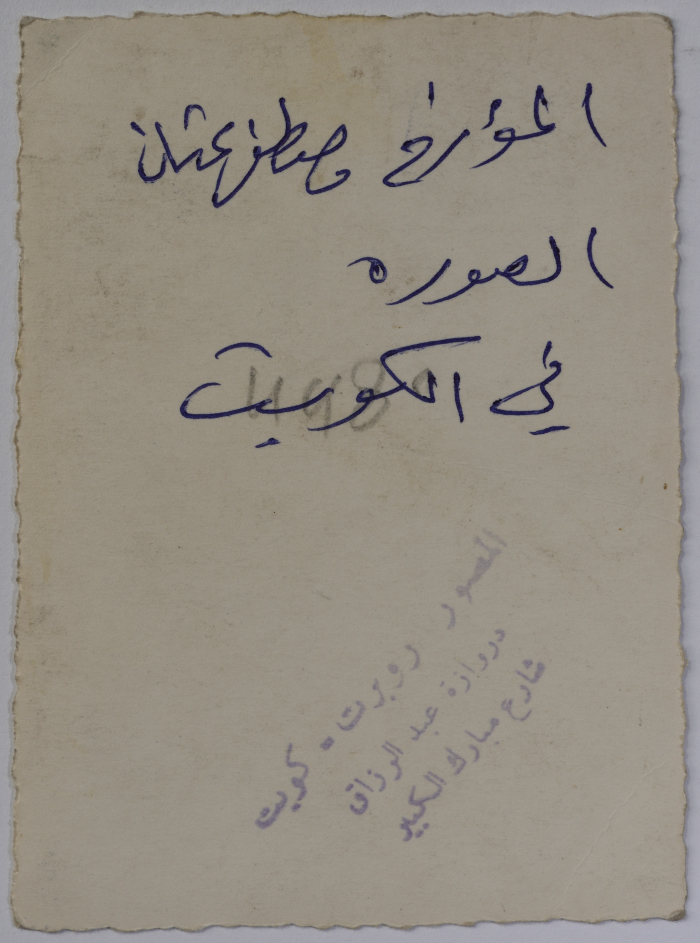 المؤرخ مصطفى عثمان
الصوره
في الكويت
المصور روبرت - كويت
دروازة عبد الرزاق
شارع مبارك الكبير